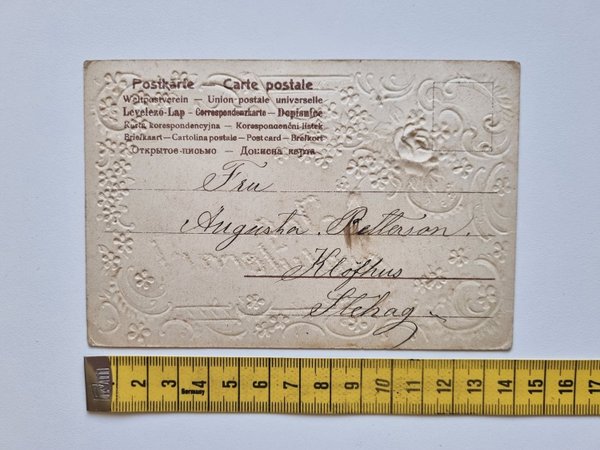 Postkarte — Carte postale
Weltpostverein — Union postale universelle
Levelező-Lap — Correspondenzkarte — Dopisnice
Karta korespondencyjna — Korespondenční lístek
Briefkaart — Cartolina postale — Post card — Brefkort
Открытое письмо — Дописна карта
Fru
Augusta Petterson.
Klöfhus
Stehag
1 2 3 4 5 6 7 8 9 10 11 12 13 14 15 16 17
Germany